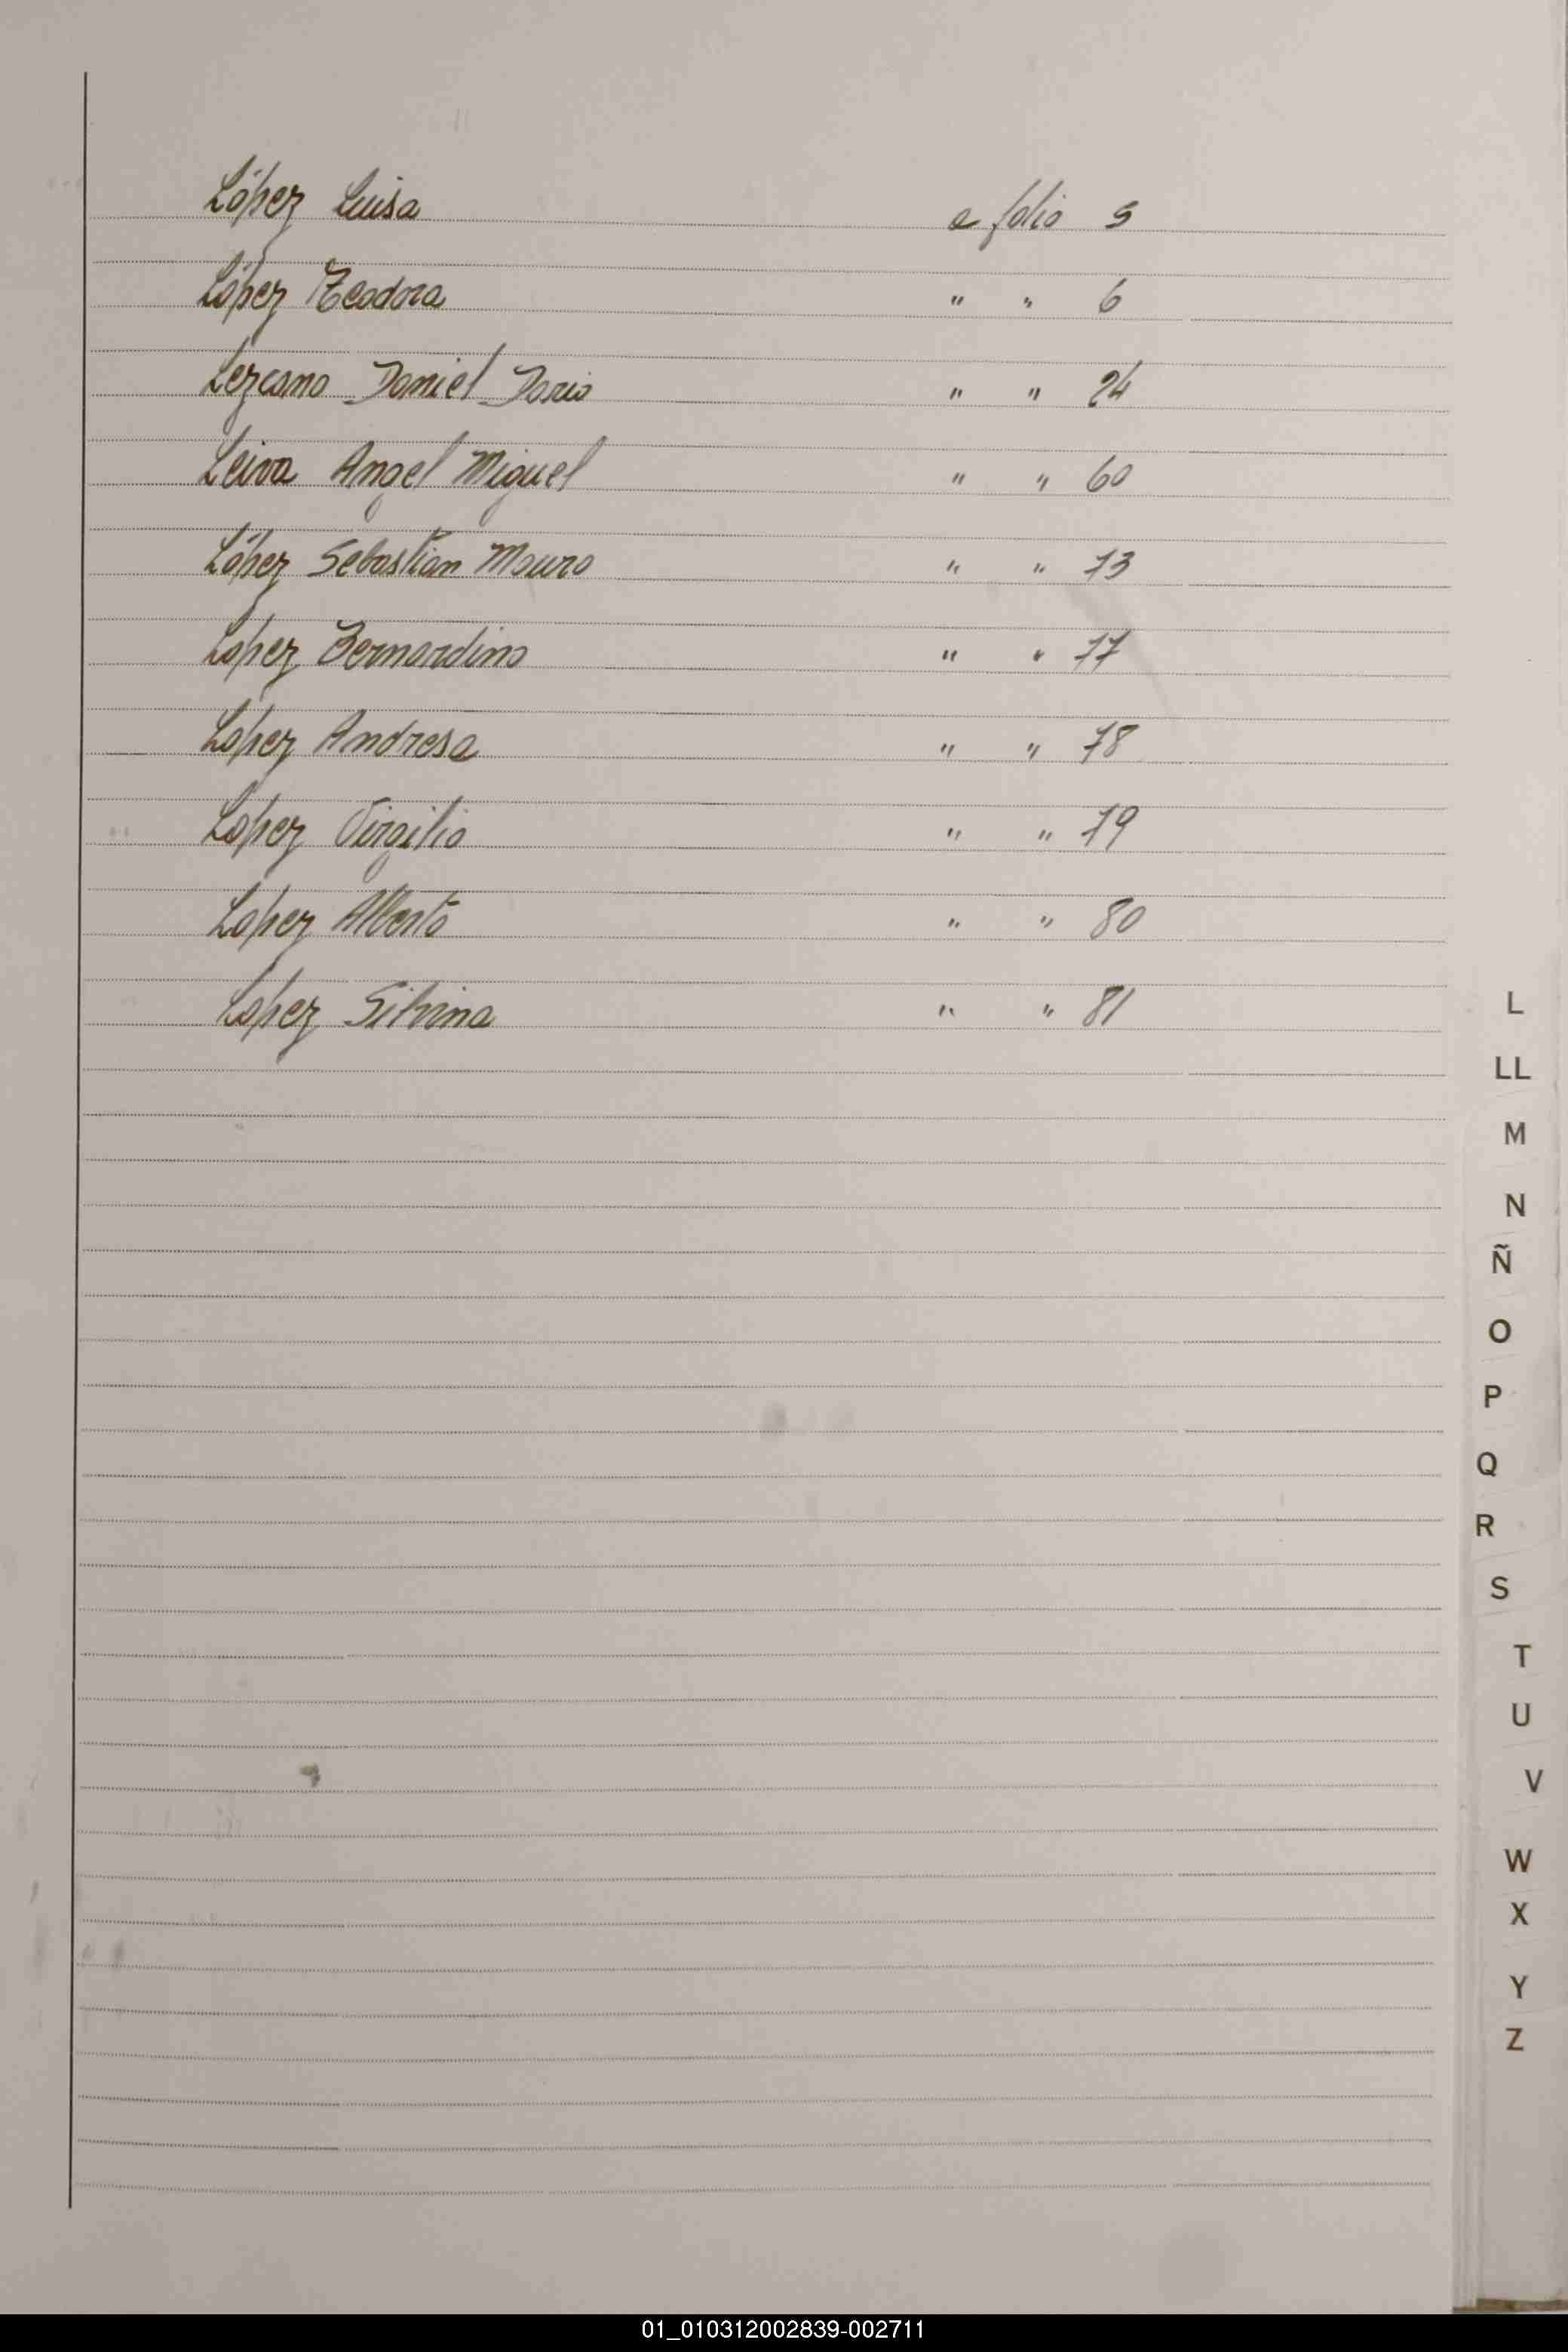 López Luisa a folio 5
López Teodora " " 6
Lezcano Daniel Dario " " 24
Leiva Angel Miguel " " 60
López Sebastian Mauro " " 73
Lopez Bernardino " " 77
Lopez Andresa " " 78
Lopez Virgilio " " 79
Lopez Alberto " " 80
Lopez Silvina " " 81
L
LL
M
N
Ñ
O
P
Q
R
S
T
U
V
W
X
Y
Z
01_010312002839-002711